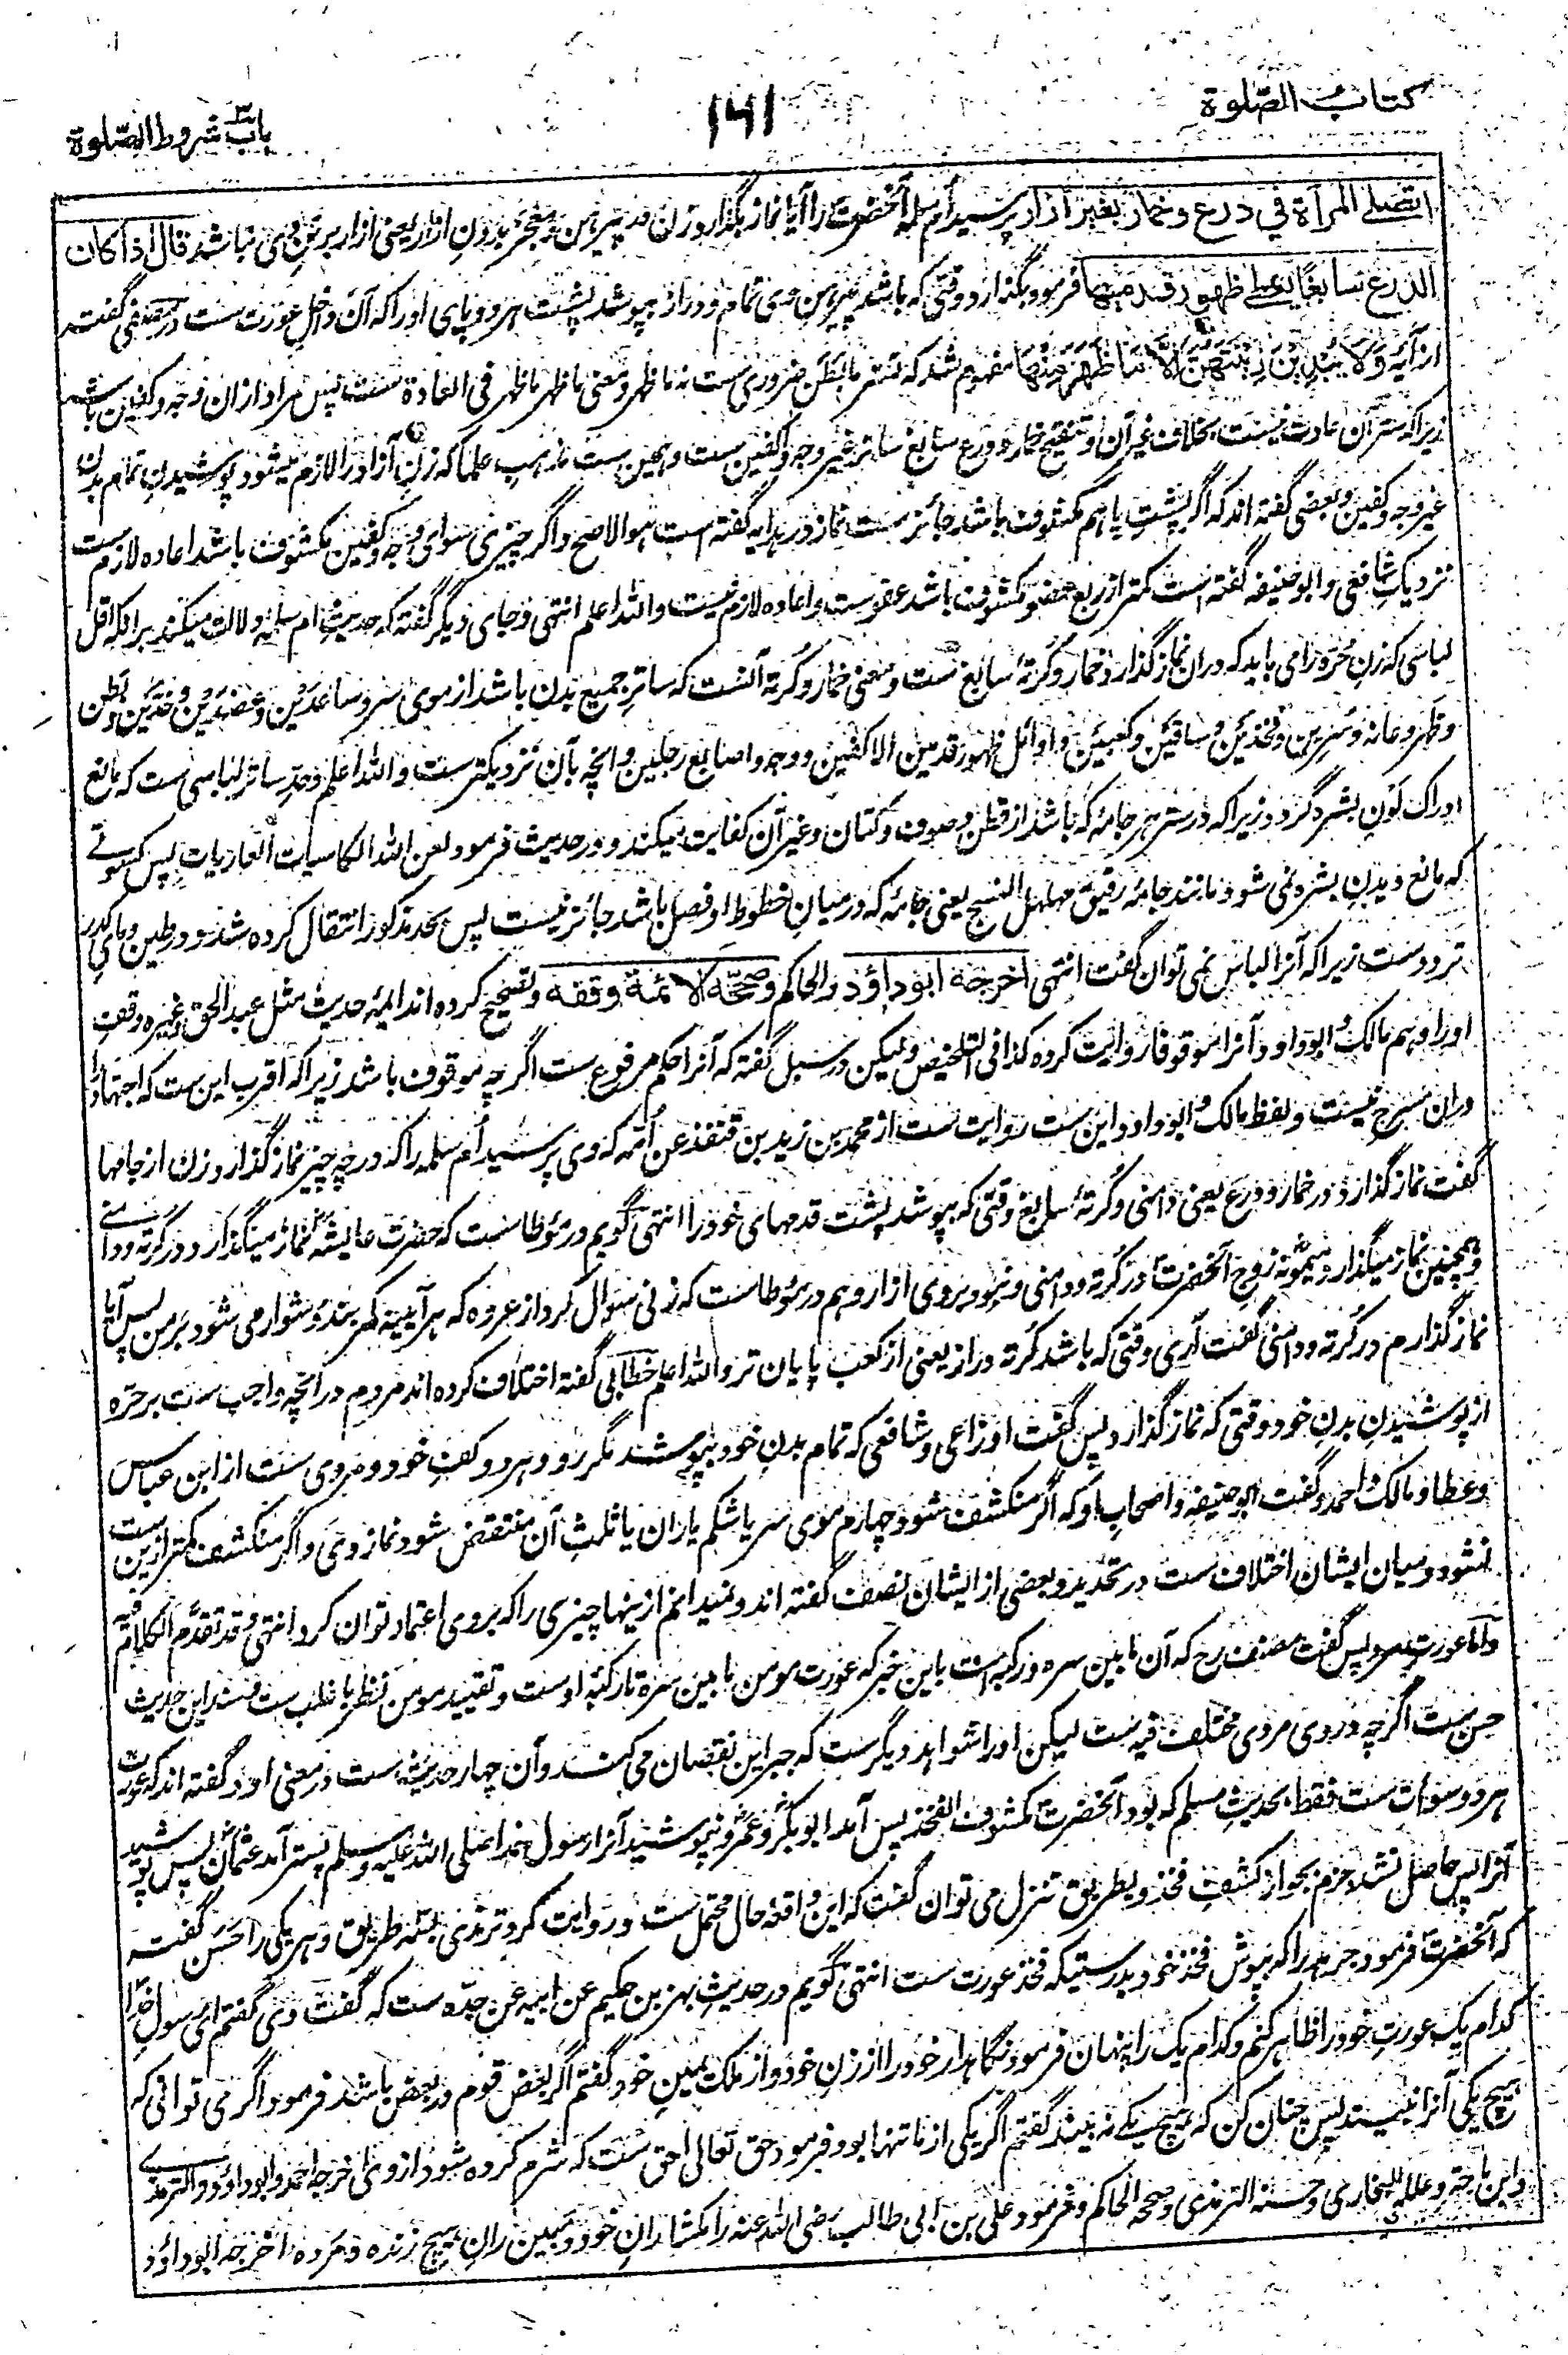 كتاب الصّلوة
۱۶۱
باب شروط الصّلوة
اتصلے المرأة في درع وخمار بغير ازار پرسید ام سلمه آنحضرت را آیا نماز بگذارد زن در پیرهن و معجر بدون ازار یعنی ازار بر تن وی نباشد قال اذا كان
الدرع سابغًا يغطے ظهور قدميها فرمود بگذارد وقتی که باشد پیرهن وی تمام و دراز بپوشد پشت هر دو پای او را که آن داخل عورت ست در مصفی گفته
از آیه وَلَا يُبْدِيْنَ زِيْنَتَهُنَّ اِلَّا مَا ظَهَرَ مِنْهَا مفهوم شد که ستر ما بطن ضروری ست نه ما ظهر و معنی ما ظهر ما ظهر فی العادة ست پس مراد ازان وجه و کفین باشد
زیرا که ستر آن عادت نیست بخلاف غیر آن و تنقیح خمار و درع سابغ ساتر غیر وجه و کفین ست و همین ست مذهب علما که زن آزاد را لازم میشود پوشیدن تمام بدن
غیر وجه و کفین و بعضی گفته اند که اگر پشت پا هم مکشوف باشد جائز ست نماز در هدایه گفته است هو الاصح و اگر چیزی سوای وجه و کفین مکشوف باشد اعاده لازم ست
نزدیک شافعی و ابو حنیفه گفته است کمتر از ربع عضو مکشوف باشد عفو ست و اعاده لازم نیست والله اعلم انتهی و جای دیگر گفته که حدیث ام سلمه دلالت میکند بر آنکه اقل
لباسی که زن حره را می باید که دران نماز گذارد خمار و کرتهٔ سابغ ست و معنی خمار و کرته آنست که ساتر جمیع بدن باشد از موی سر و ساعدین و عضدین و خدین و بطن
و ظهر و عانه و سرین و فخذین و ساقین و کعبین و اوائل ظهور قدمین الا کفین و وجه و اصابع رجلین و آنچه بآن نزدیکتر ست والله اعلم و حد ساتر لباسی ست که مانع
ادراک لون بشره گردد زیرا که در ستر هر جامه که باشد از قطن و صوف و کتان و غیر آن کفایت میکند و در حدیث فرمود لعن الله الکاسیات العاریات پس کسوتے
که مانع دیدن بشره نمی شود مانند جامهٔ رقیق مهلهل النسج یعنی جامهٔ که در میان خطوط او فصل باشد جائز نیست پس بحد مذکور انتقال کرده شد و در طین و مای کدر
تردد ست زیرا که آنرا لباس نمی توان گفت انتهی اخرجه ابو داؤد والحاکم وصحّح الائمة وقفه و تصحیح کرده اند ایمهٔ حدیث مثل عبد الحق و غیره وقف
او را و هم مالک و ابو داود آنرا موقوفا روایت کرده کذا فی التلخیص و لیکن در سبل گفته که آنرا حکم مرفوع ست اگر چه موقوف باشد زیرا که اقرب این ست که اجتهاد را
دران مسرح نیست و لفظ مالک و ابو داود این ست روایت ست از محمد بن زید بن قنفذ عن اُمّه که وی پرسید اُم سلمه را که در چه چیز نماز گذارد زن از جامها
گفت نماز گذارد در خمار و درع یعنی دامنی و کُرتهٔ سابغ وقتی که بپوشد پشت قدمهای خود را انتهی گویم در مؤطاست که حضرت عایشه نماز میگذارد در کرته و دامنے
و همچنین نماز میگذارد میمونه زوج آنحضرت در کُرته و دامنی و نبود بر وی ازار و هم در مؤطاست که زنی سوال کرد از عروه که هر آیینه کمربند دشوار می شود بر من پس آیا
نماز گذارم در کرته و دامنی گفت آری وقتی که باشد کُرته دراز یعنی از کعب پایان تر والله اعلم خطابی گفته اختلاف کرده اند مردم در آنچه واجب ست بر حرّه
از پوشیدن بدن خود وقتی که نماز گذارد پس گفت اوزاعی و شافعی که تمام بدن خود بپوشد مگر رو و هر دو کف خود و مروی ست از ابن عباس
و عطا و مالک و احمد و گفت ابو حنیفه و اصحاب او که اگر منکشف شود چهارم موی سر یا شکم یا ران یا ثلث آن منتقض شود نماز وی و اگر منکشف کمتر ازین ست
نشود و میان ایشان اختلاف ست در تحدید و بعضی از ایشان نصف گفته اند و نمیدانم ازینها چیزی را که بر وی اعتماد توان کرد انتهی و قد تقدّم الکلام فیه
و اما عورت مرد پس گفت مصنف رح که آن ما بین سره و رکبه است باین خبر که عورت مومن ما بین سره تا رکبهٔ اوست و تقیید مومن نظر باغلب ست و سند این حدیث
حسن ست اگر چه در وی مردی مختلف فیه ست لیکن او را شواهد دیگر ست که جبر این نقصان می کنند و آن چهار حدیث ست در معنی او و گفته اند که عورت
هر دو سوأت ست فقط بحدیث مسلم که بود آنحضرت مکشوف الفخذ پس آمد ابو بکر و عمر و نپوشید آنرا رسول خدا صلی الله علیه وسلم پستر آمد عثمان پس پوشید
آنرا پس حاصل نشد جزم بجواز کشف فخذ و بطریق تنزل می توان گفت که این واقعهٔ حال محتمل ست و روایت کرد ترمذی بسه طریق و هر یکی را حسن گفته
که آنحضرت فرمود جرهد را که بپوش فخذ خود بدرستیکه فخذ عورت ست انتهی گویم در حدیث بهز بن حکیم عن ابیه عن جدّه ست که گفت وی گفتم ای رسول خدا
کدام یک عورت خود را ظاهر کنم و کدام یک را پنهان فرمود نگاهدار خود را از زن خود و از ملک یمین خود گفتم اگر بعض قوم در بعض باشد فرمود اگر می توانی که
هیچ یکی آنرا نبیند پس چنان کن که هیچ یکے نه بیند گفتم اگر یکی از ما تنها بود فرمود حق تعالی احق ست که شرم کرده شود از وی اخرجه احمد و ابو داؤد والترمذے
وابن ماجه و علله البخاری وحسنه الترمذی وصححه الحاکم و فرمود علی بن ابی طالب رضی الله عنه را مکشا ران خود و مبین ران هیچ زنده و مرده اخرجه ابو داؤد